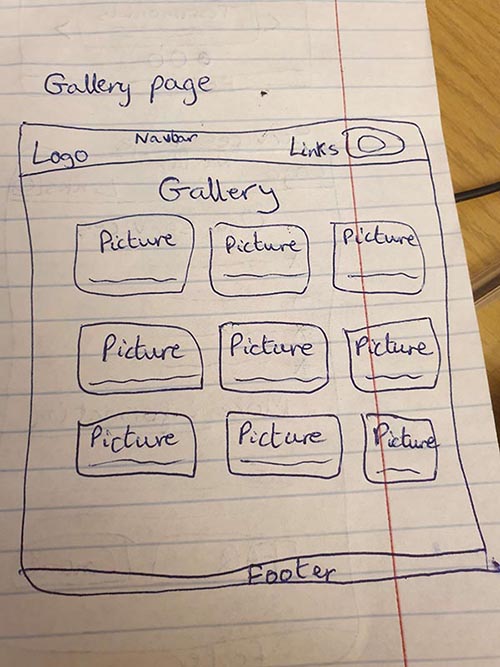 Gallery page
Navbar
Logo
Links
Gallery
Picture Picture Picture
Picture Picture Picture
Picture Picture Picture
Footer